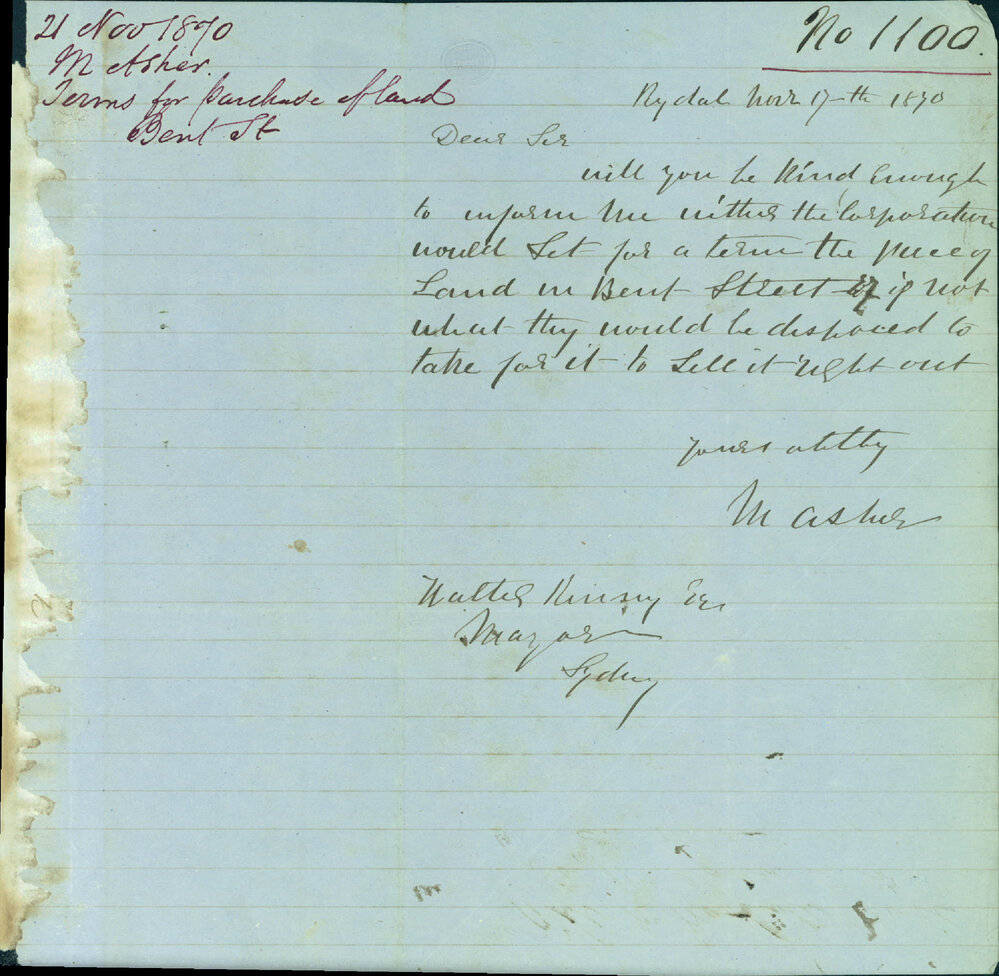 21 Nov 1870
M Asher.
Terms for purchase of land
Bent St
No 1100.
Rydal Novr 17th 1870
Dear Sir
will you be Kind Enough
to inform me wither the Corporation
would Let for a term the piece of
Land in Bent Street if if not
what they would be disposed to
take for it to Sell it right out
yours
M Asher
Walter Esq
Mayor
Sydney